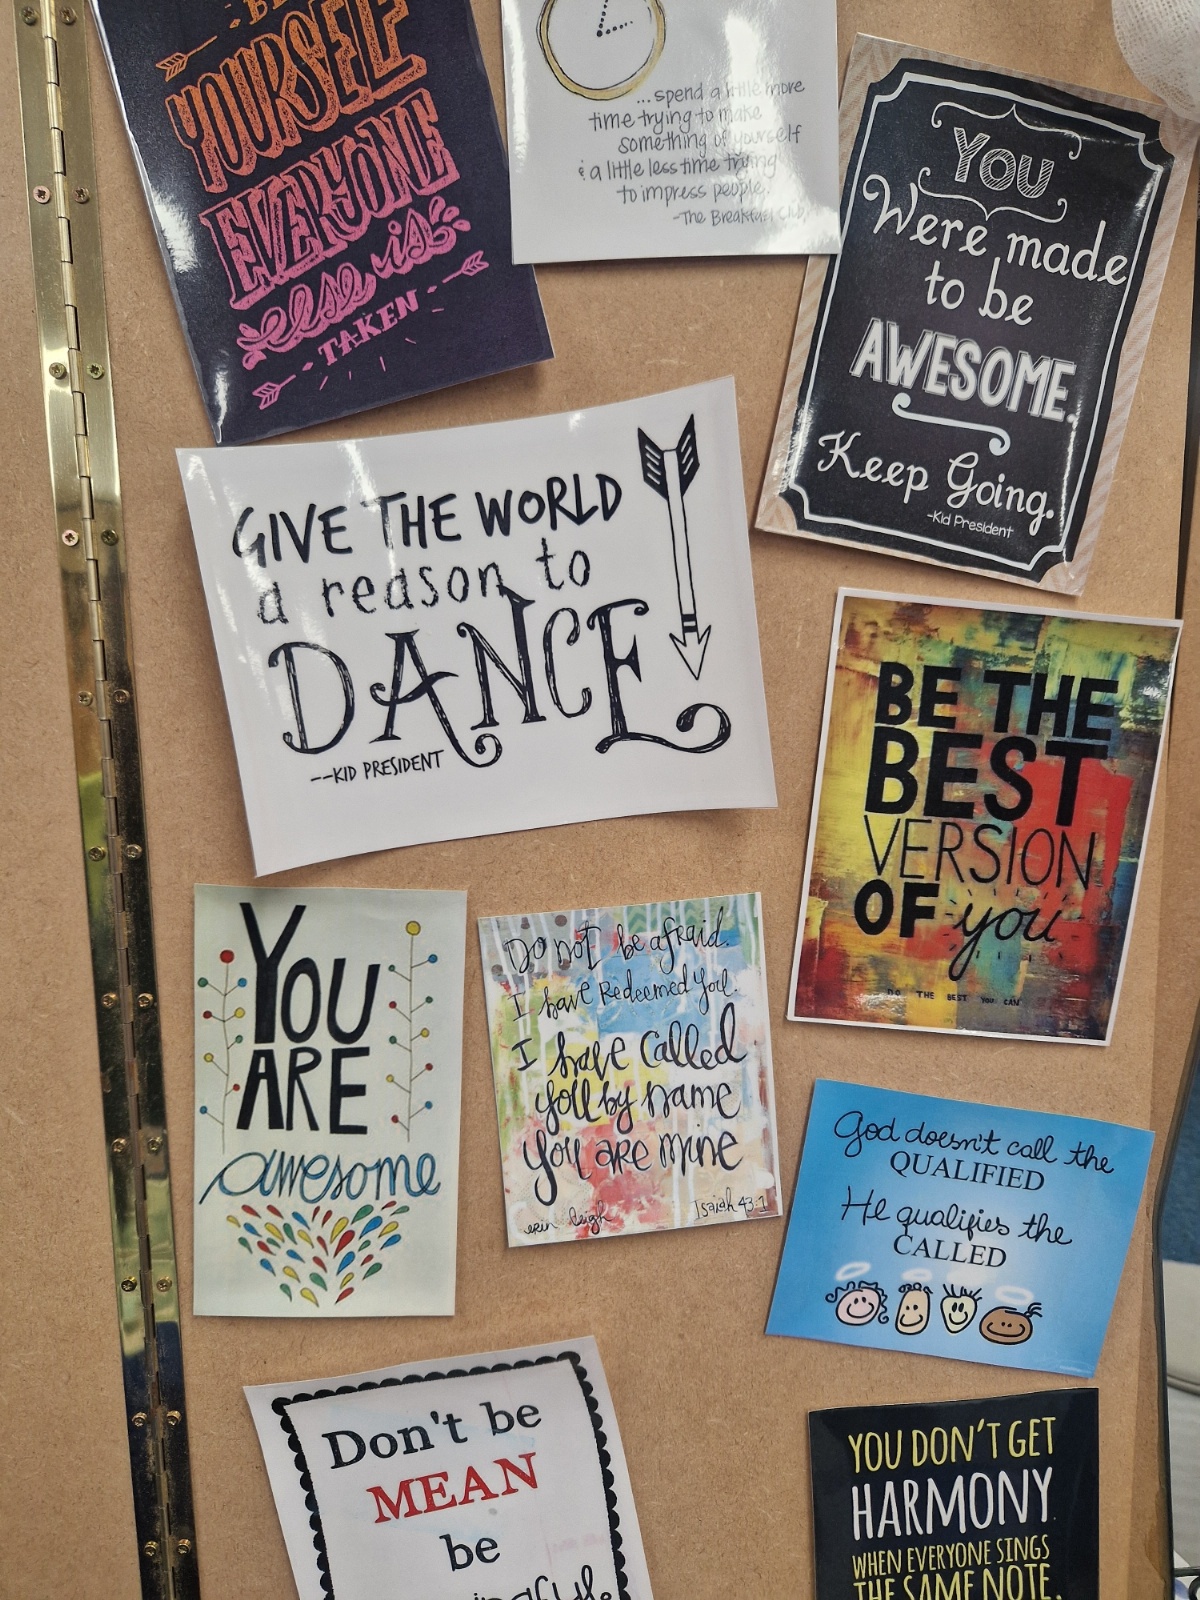 YOURSELF
EVERYONE
else is
TAKEN
...spend a little more
time trying to make
something of yourself
& a little less time trying
to impress people.
-The Breakfast Club
YOU
Were made
to be
AWESOME.
Keep Going.
-Kid President
GIVE THE WORLD
a reason to
DANCE
--KID PRESIDENT
BE THE
BEST
VERSION
OF you
DO THE BEST YOU CAN
YOU
ARE
awesome
Do not be afraid.
I have Redeemed you.
I have called
you by name
you are mine
erin leigh
Isaiah 43:1
God doesn't call the
QUALIFIED
He qualifies the
CALLED
Don't be
MEAN
be
YOU DON'T GET
HARMONY
WHEN EVERYONE SINGS
THE SAME NOTE.